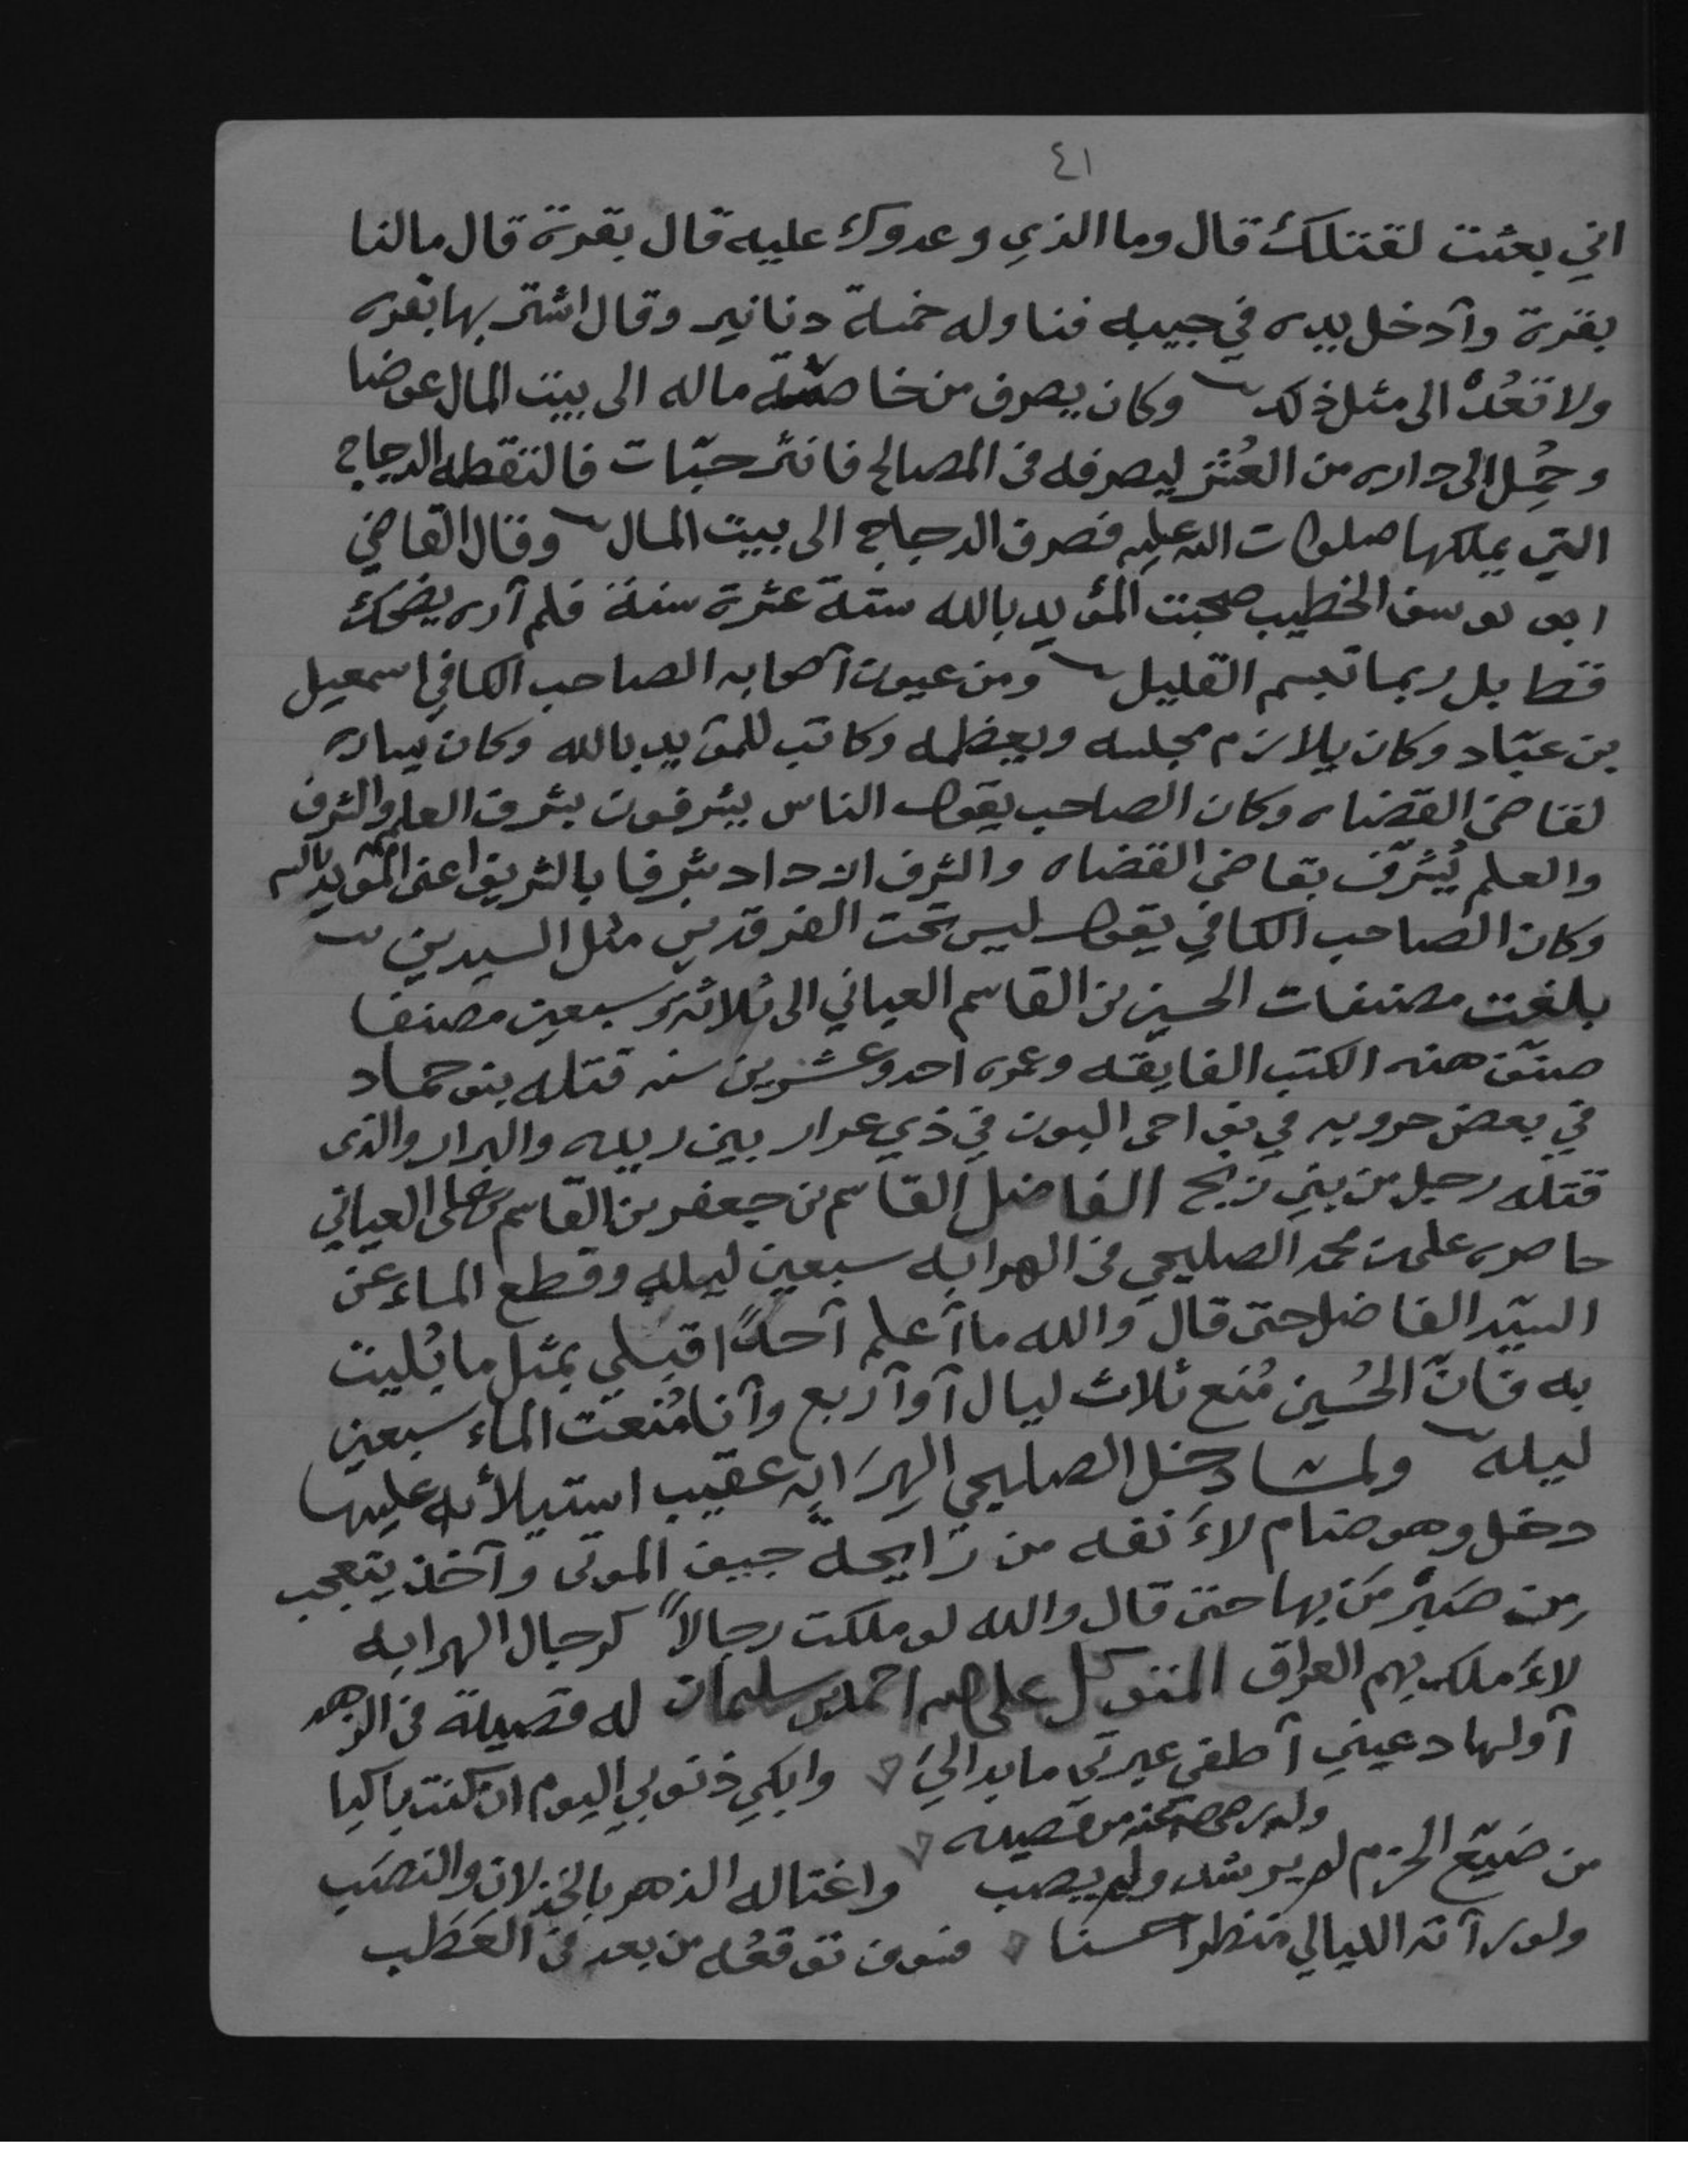 ٤١
اني بعثت لقتلك قال وما الذي وعدوك عليه قال بقرة قال مالنا
بقرة وآدخل يده في جيبه فناوله خمسة دنانير وقال اشتر بها بقره
ولا تعُدْ الى مثل ذلك وكان يصرف من خاصة ماله الى بيت المال عوضا
وحُمِل الى داره من العُشْر ليصرفه في المصالح فانثر حبّات فالتقطه الدجاج
التي يملكها صلوات الله عليه فصرف الدجاج الى بيت المال وقال القاضي
ابو يوسف الخطيب صحبت المؤيد بالله ستة عشرة سنة فلم آره يضحك
قط بل ربما تبسم القليل ومن عيون آصحابه الصاحب الكافي اسمعيل
بن عبّاد وكان يلازم مجلسه ويعظمه وكاتب للمؤيد بالله وكان
لقاضي القضاه وكان الصاحب يقول الناس يشرفون بشرف العلم والشرف
والعلم يُشرّف بقاضي القضاه والشرف ازداد شرفا بالشريف اعني المؤيد بالله
وكان الصاحب الكافي يقول ليس تحت الفرقدين مثل السيدين
بلغت مصنفات الحسين بن القاسم العياني الى ثلاثة وسبعين مصنفا
صنّف هذه الكتب الفايقه وعمره احد وعشرين سنه قتله بنو حماد
في بعض حروبه في نواحي البون في ذي عرار بين ريده والبرار والذي
قتله رجل من بني زيح الفاضل القاسم بن جعفر بن القاسم بن علي العياني
حاصره علي بن محمد الصليحي في الهرابه سبعين ليله وقطع الماء عن
السيّد الفاضل حتى قال والله ما آعلم آحدًا قبلي بمثل ما بُليت
به فانّ الحُسين مُنع ثلاث ليال آو آربع وآنا مُنعت الماء سبعين
ليله ولما دخل الصليحي الهرَابه عقيب استيلأئه عليها
دخل وهو ضام لأَنفه من رَايحة جيف الموتى وآخذ يتعجب
من صَبْر مَن بها حتى قال والله لو ملكت رجالاً كرجال الهرابه
لأَملك بهم العراق المتوكل على الله احمد بن سليمان له قصيدة في الزهد
آولها دعيني آطفي عبرتي ما بداليَ وابكي ذنوبي اليوم ان كنت باكيا
وله رضي الله عنه من قصيده
من ضيّع الحزم لم يرشد ولم يصب واغتاله الدهر بالخذلان والنصَب
ولو رآ ته الليالي منظرا حسنا فسوف توقعُه من بعد في العَطَب